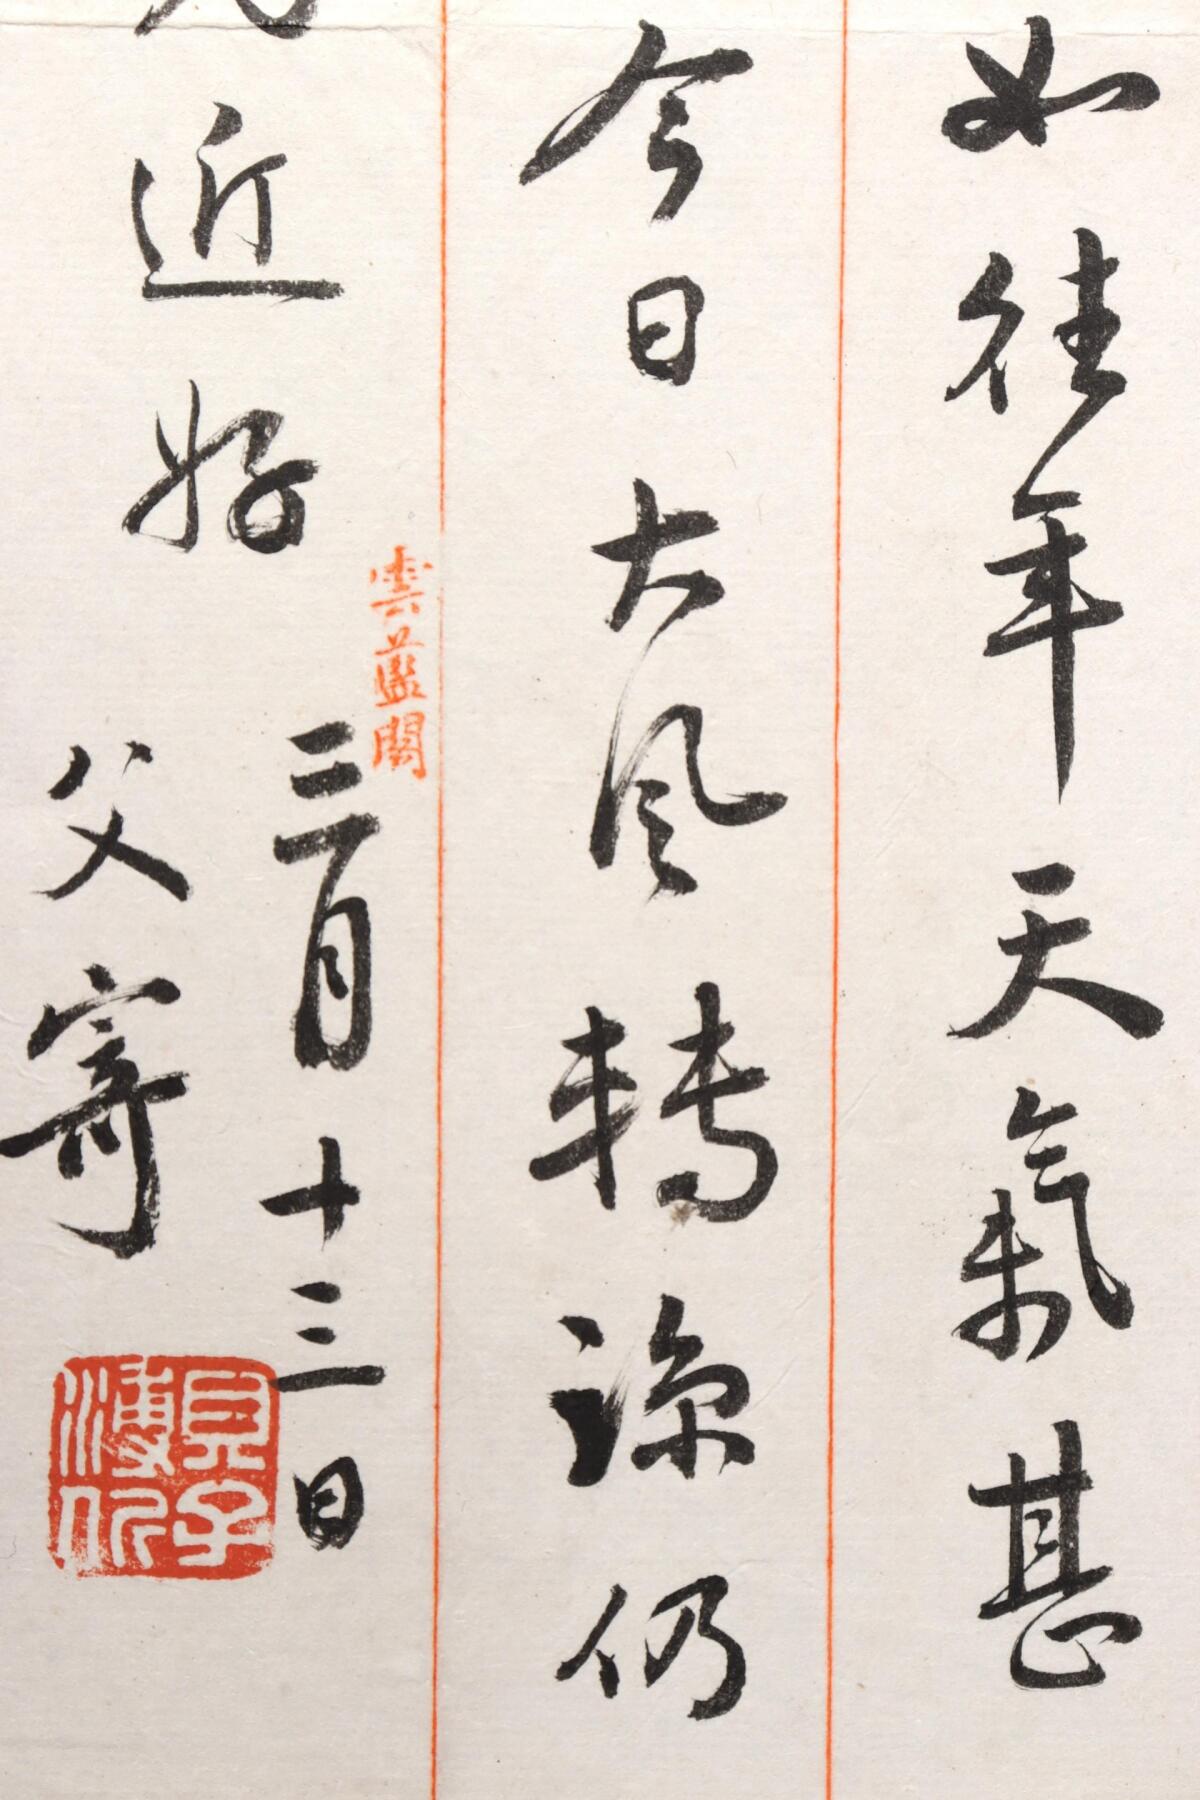 如往年天氣甚
今日大風轉涼仍
近好
雲藍閣
三月十三日
父寄